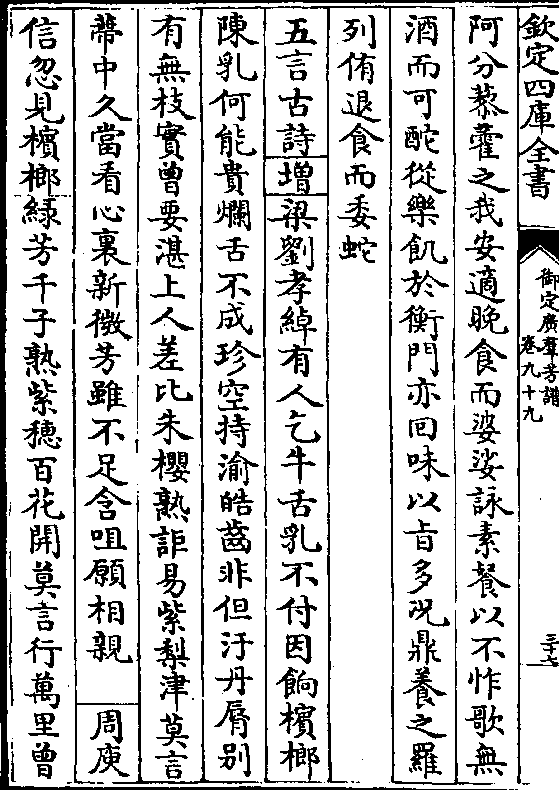 欽定四庫全書
御定廣羣芳譜
卷九十九
三十七
阿分藜藿之我安適晚食而婆娑詠素餐以不怍歌無
酒而可酡從樂飢於衡門亦回味以旨多況鼎養之羅
列侑退食而委蛇
五言古詩增梁劉孝綽有人乞牛舌乳不付因餉檳榔
陳乳何能貴爛舌不成珍空持渝皓齒非但汙丹脣别
有無枝實曾要湛上人差比朱櫻熟詎易紫梨津莫言
蔕中久當看心裏新微芳雖不足含咀願相親　周庾
信忽見檳榔綠芳千子熟紫穗百花開莫言行萬里曾